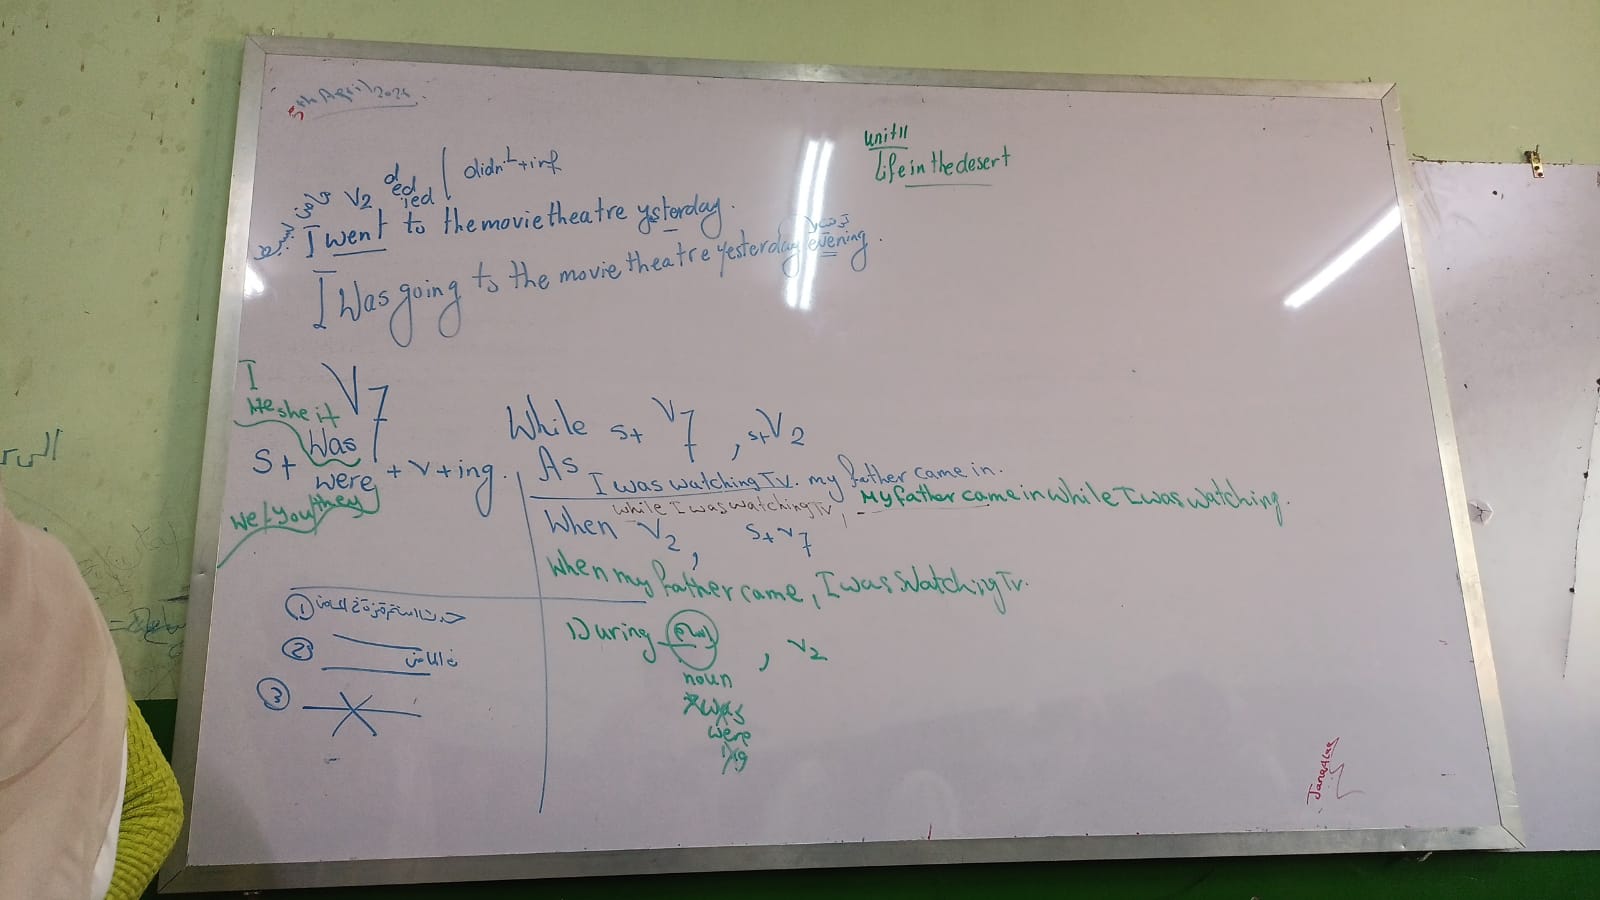 5th April 2025.
unit 11
Life in the desert
V2 d ed ied | didn't + inf
ماضى بسيط
I went to the movie theatre ysterday.
تحديد
I was going to the movie theatre yesterday evening.
I
He she it
V7
S + was
were + v + ing.
we / you / they
While S + V7 , S + V2
As
I was watching Tv. my father came in.
while I was watching Tv, - My father came in while I was watching.
When V2 , S + V7
When my father came, I was watching Tv.
① حدث استمر فترة فى الماضى
② فى الماضى
③
During اسم , V2
noun
was
were
ing